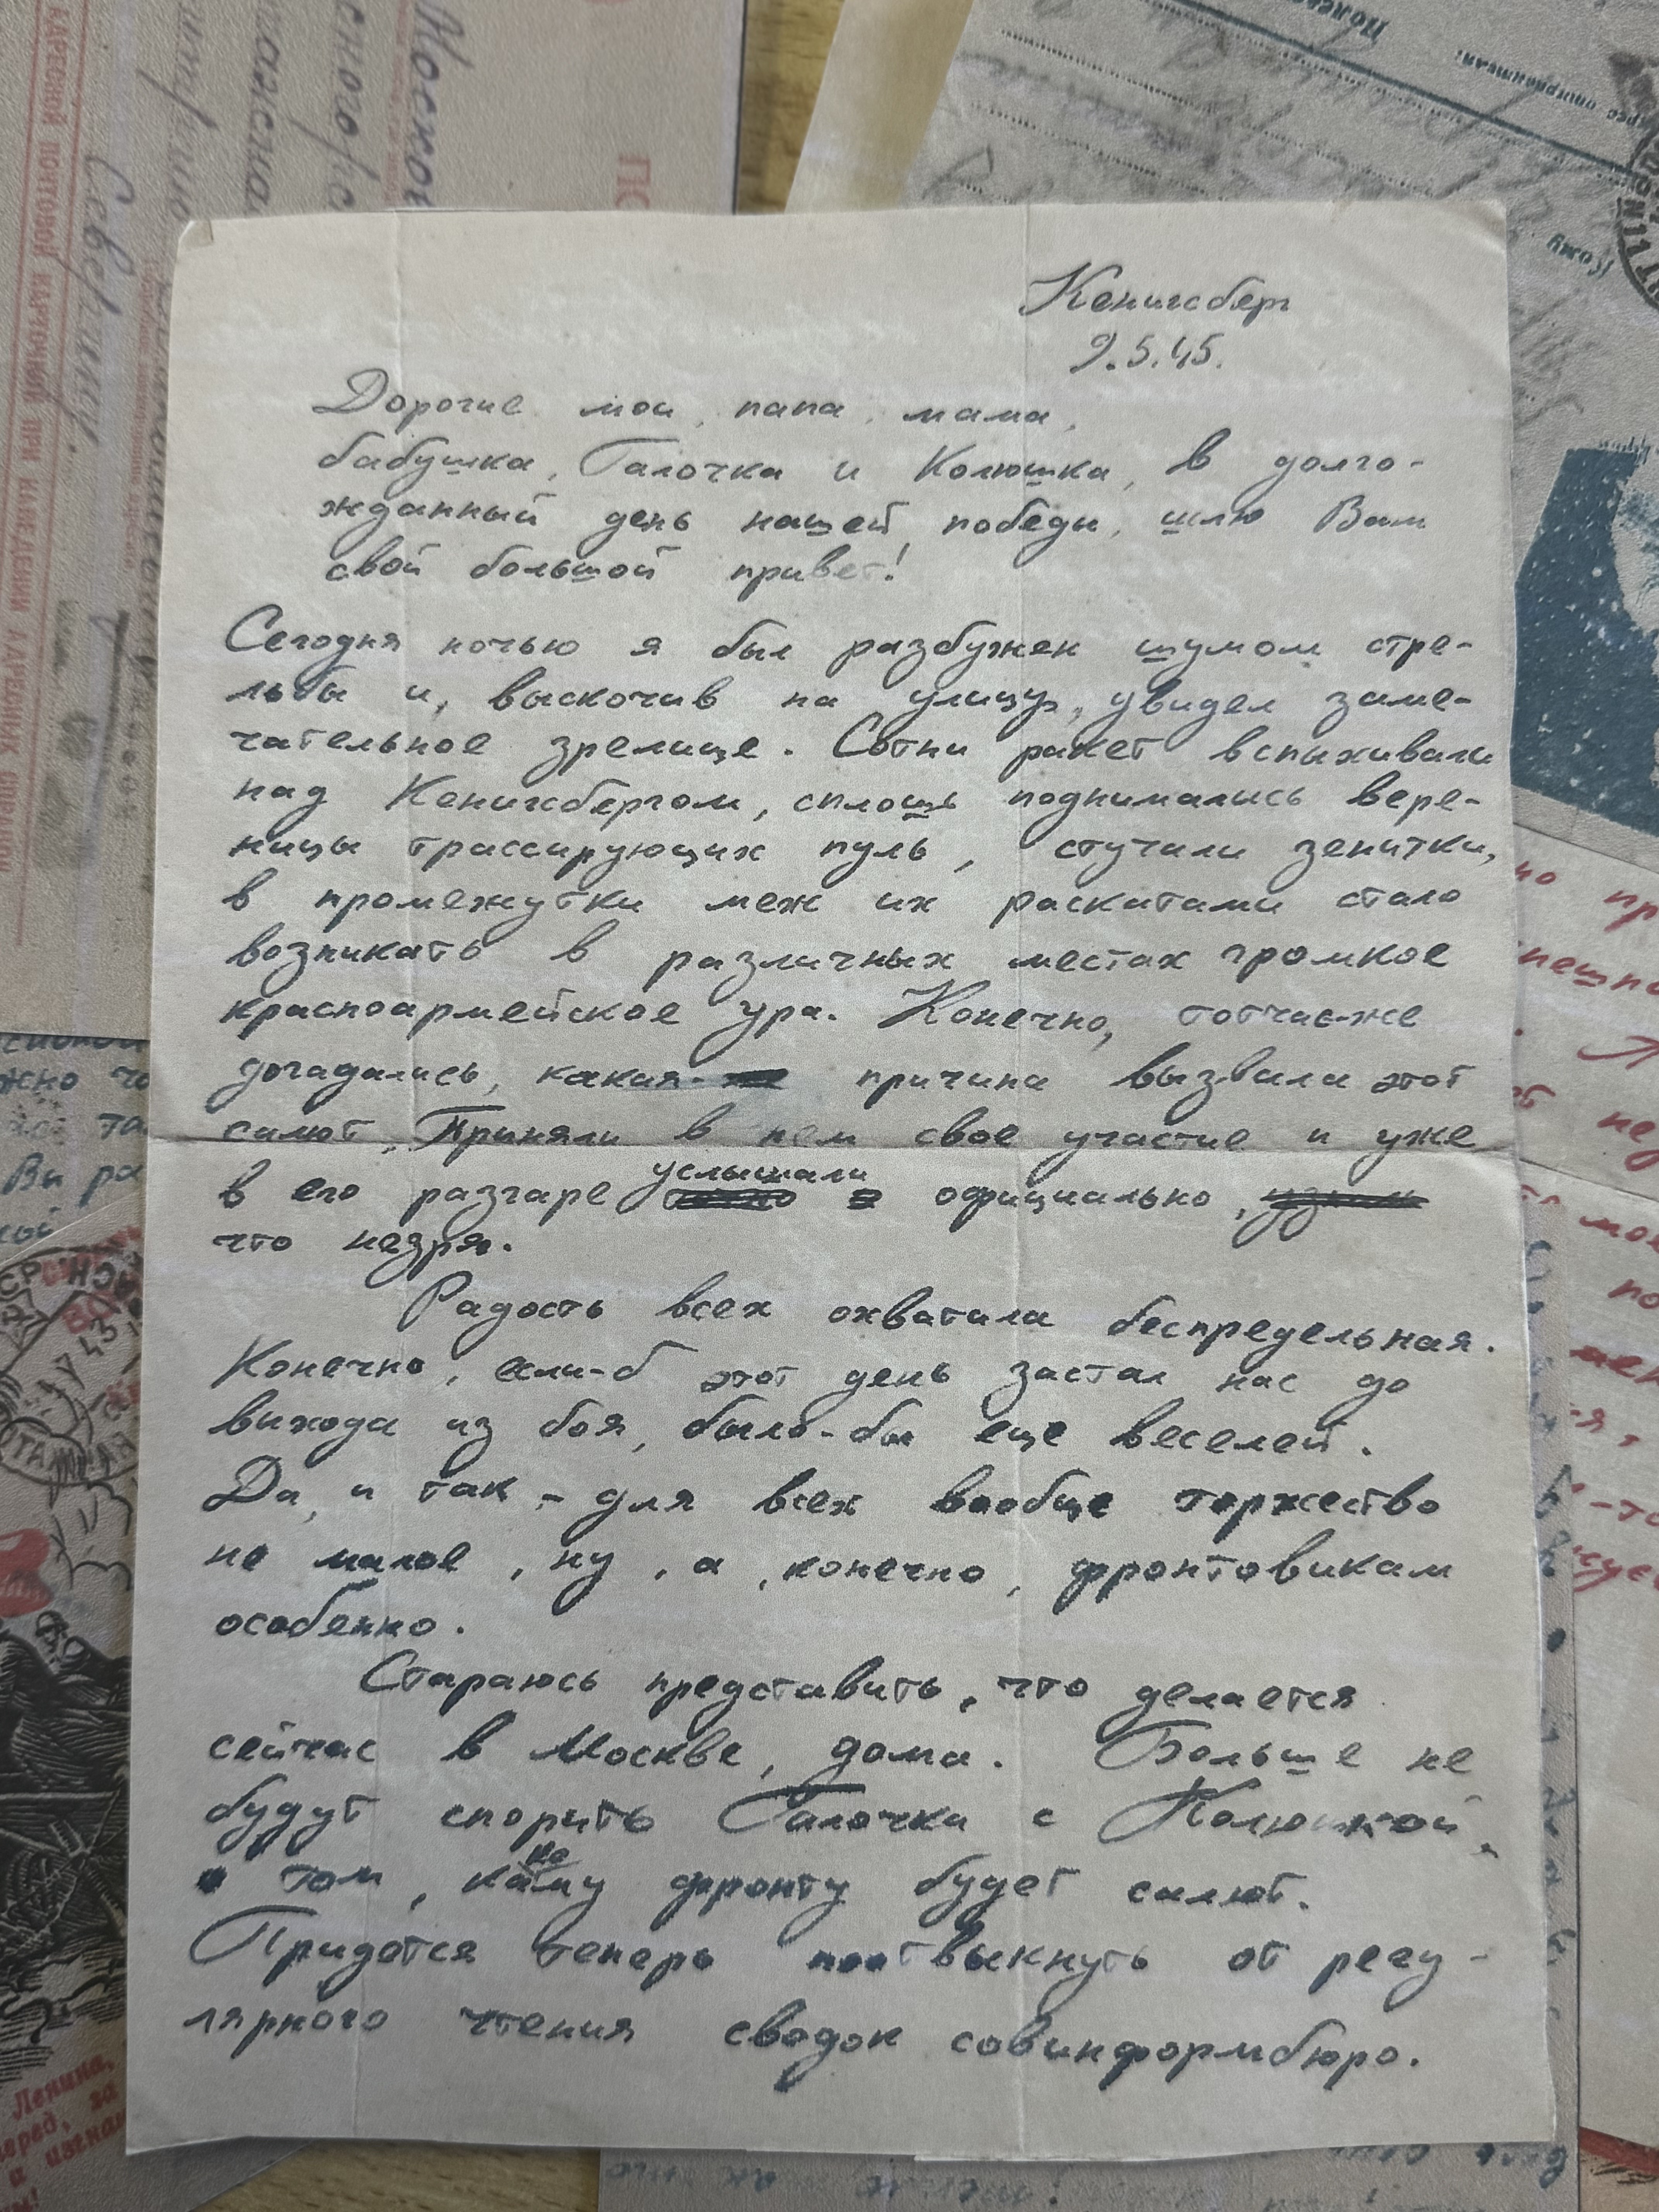 Кенигсберг
9.5.45.
Дорогие мои, папа, мама,
бабушка, Галочка и Колюшка, в долго-
жданный день нашей победы, шлю Вам
свой большой привет!
Сегодня ночью я был разбужен шумом стре-
льбы и, выскочив на улицу, увидел заме-
чательное зрелище. Сотни ракет вспыхивали
над Кенигсбергом, сплошь поднимались вере-
ницы трассирующих пуль, стучали зенитки,
в промежутки меж их раскатами стало
возникать в различных местах громкое
красноармейское ура. Конечно, тотчас-же
догадались, какая- причина вызвала этот
салют. Приняли в нем свое участие и уже
в его разгаре услышали официально,
что незря.
Радость всех охватила беспредельная.
Конечно, если-б этот день застал нас до
выхода из боя, было-бы еще веселей.
Да, и так, - для всех вообще торжество
не малое, ну, а, конечно, фронтовикам
особенно.
Стараюсь представить, что делается
сейчас в Москве, дома. Больше не
будут спорить Галочка с Колюшкой,
о том, какому фронту будет салют.
Придется теперь поотвыкнуть от регу-
лярного чтения сводок совинформбюро.
АДРЕСНОЙ ПОЧТОВОЙ КАРТОЧКОЙ ПРИ НАВЕДЕНИИ АДРЕСНЫХ СПРАВОК
Кому
Ленина,